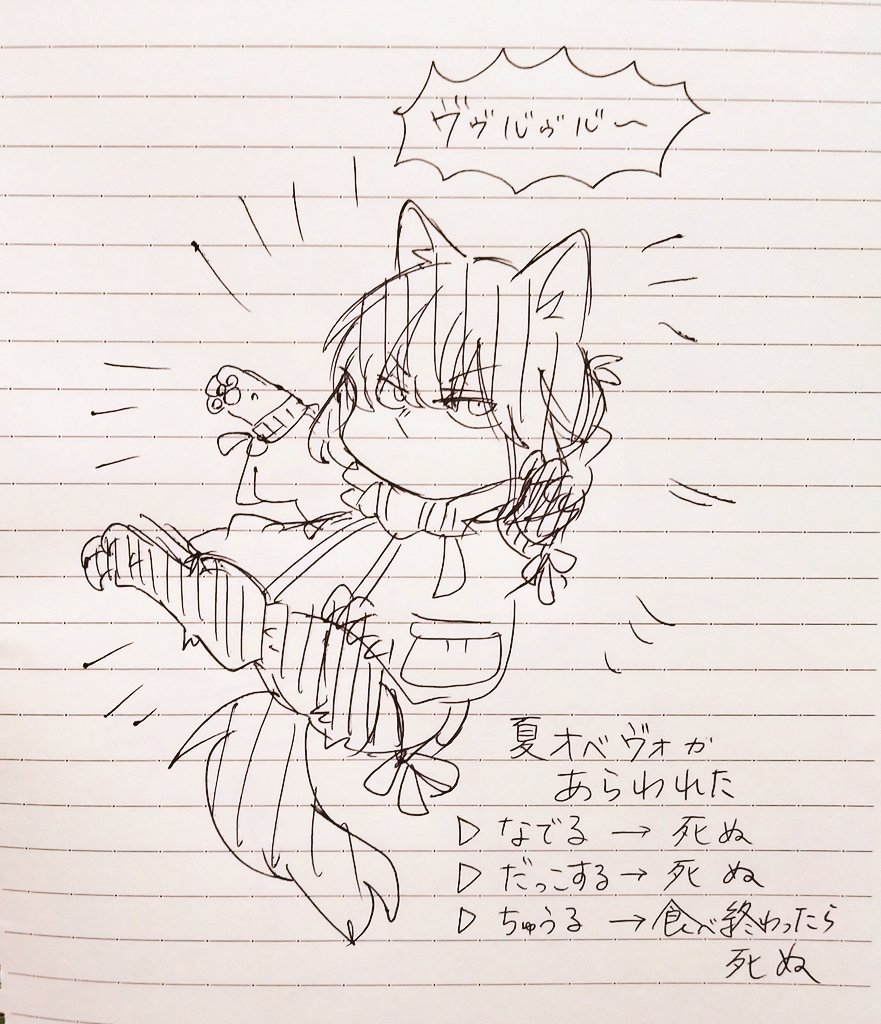 ヴヴルヴル〜
夏オベヴォが
あらわれた
▷ なでる → 死ぬ
▷ だっこする → 死ぬ
▷ ちゅうる → 食べ終わったら
死ぬ